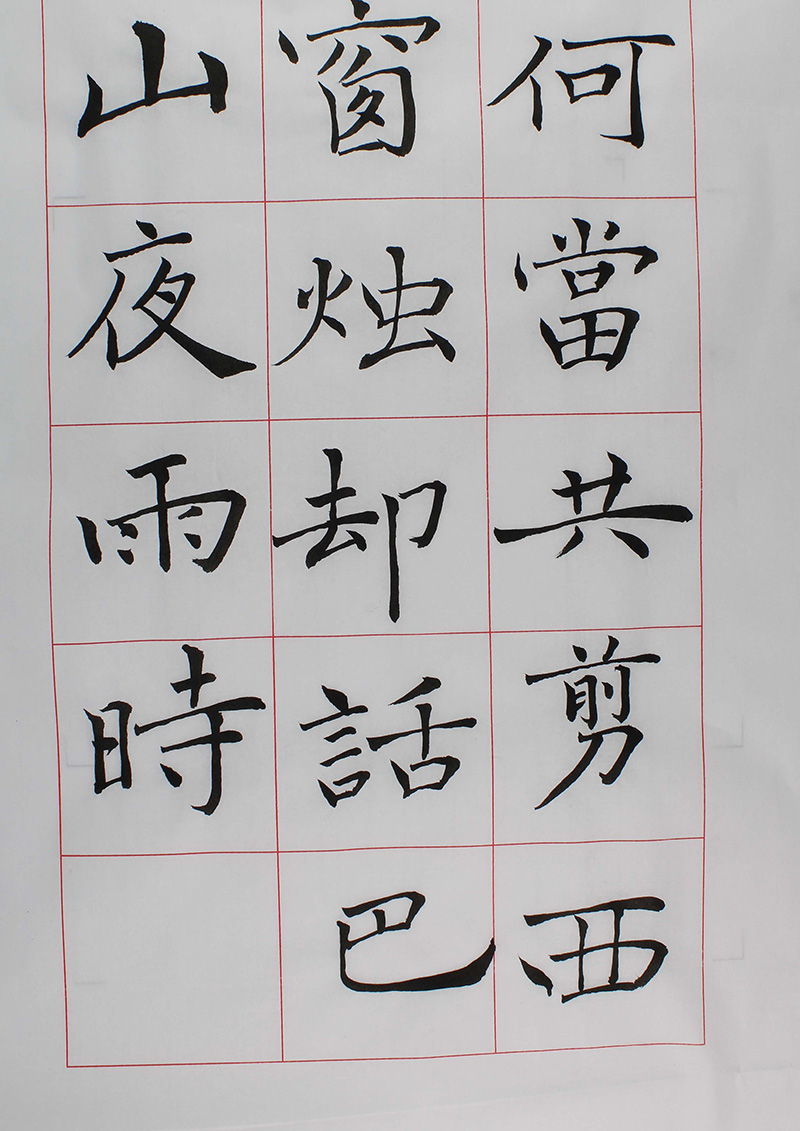 何當共剪西
窗烛却話巴
山夜雨時